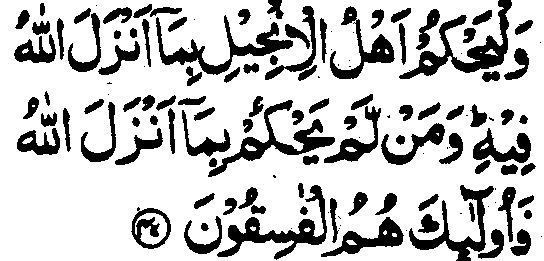 وَلْيَحْكُمْ اَهْلُ الْاِنْجِيْلِ بِمَاۤ اَنْزَلَ اللّٰهُ
فِيْهِ ؕ وَمَنْ لَّمْ يَحْكُمْ بِمَاۤ اَنْزَلَ اللّٰهُ
فَاُولٰٓئِكَ هُمُ الْفٰسِقُوْنَ